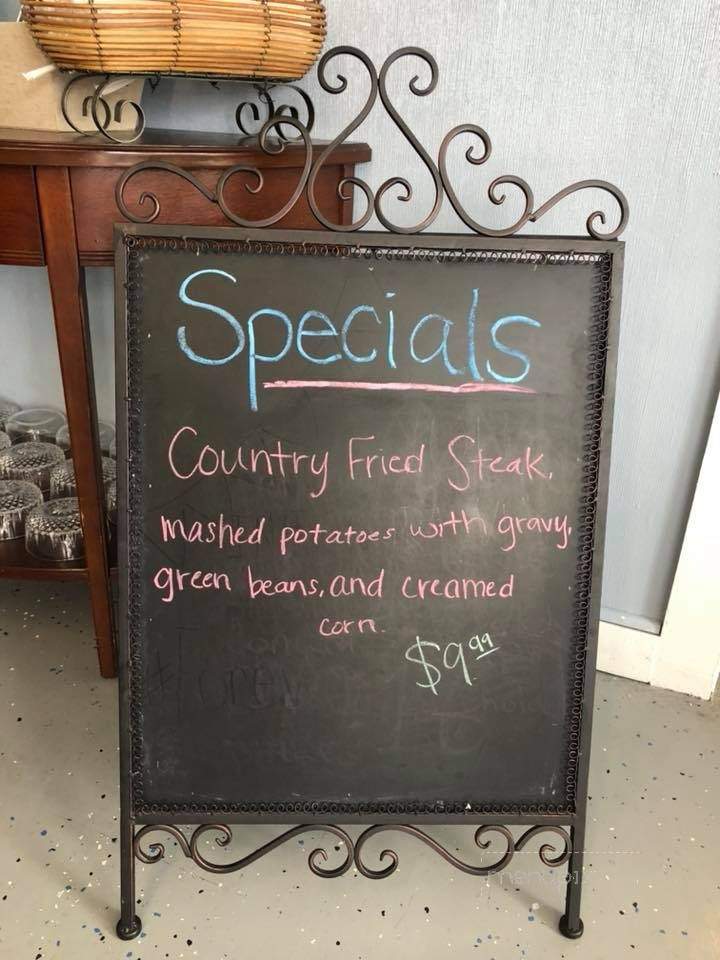 Specials
Country Fried Steak,
mashed potatoes with gravy,
green beans, and creamed
corn.
$9.99